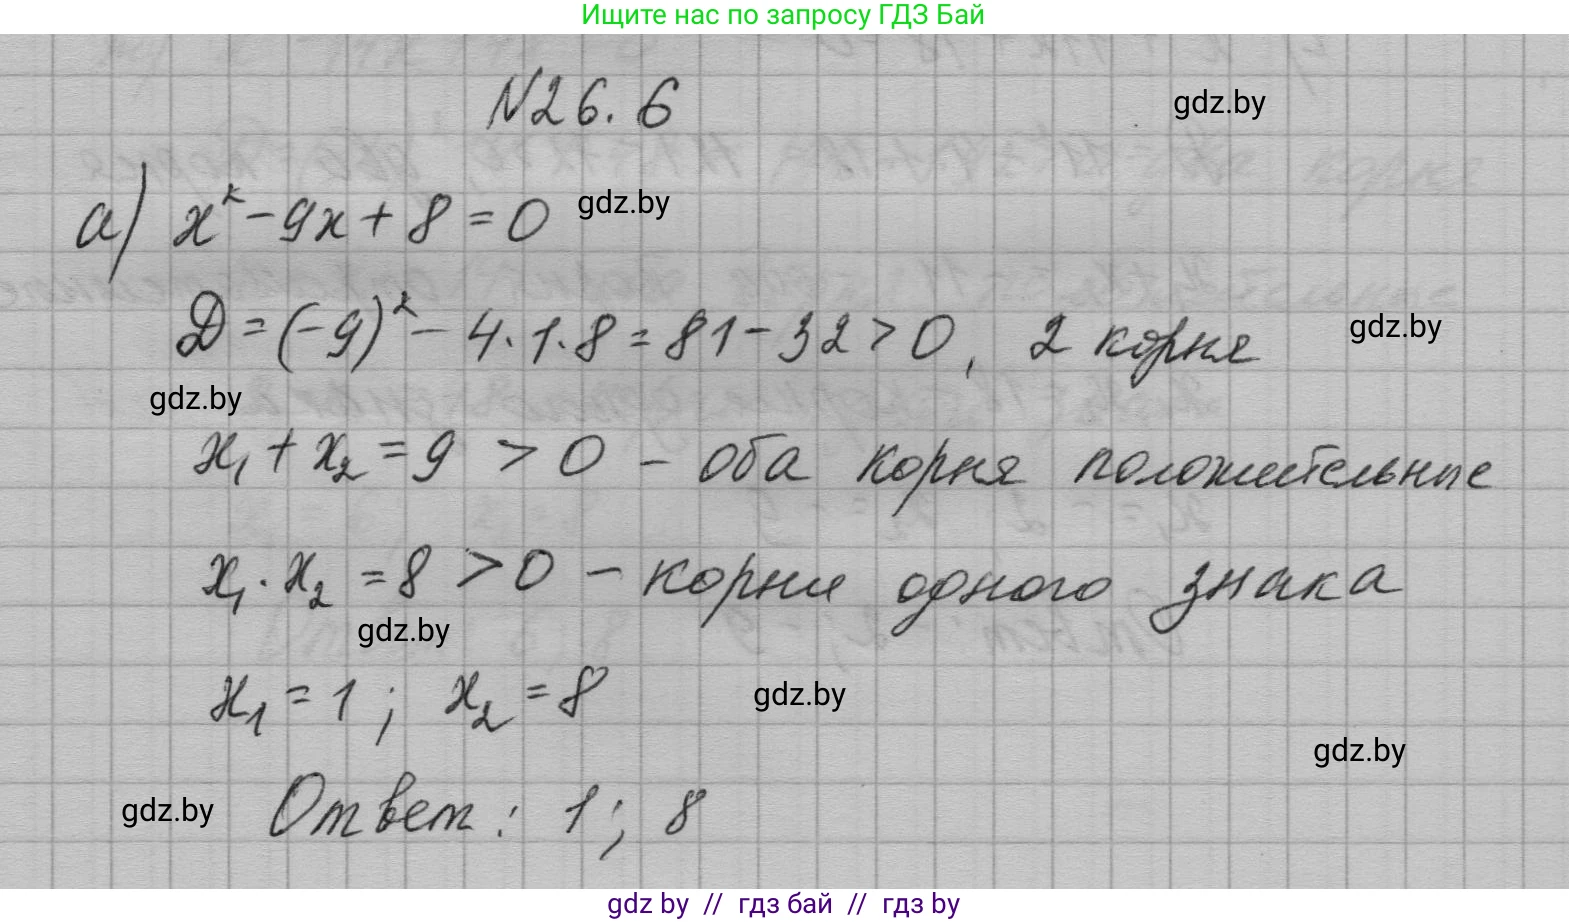 Ищите нас по запросу ГДЗ Бай
N26.6
gdz.by
а) x² - 9x + 8 = 0
gdz.by
Д = (-9)² - 4·1·8 = 81 - 32 > 0, 2 корня
gdz.by
gdz.by
x₁ + x₂ = 9 > 0 - оба корня положительные
x₁·x₂ = 8 > 0 - корни одного знака
gdz.by
x₁ = 1; x₂ = 8
gdz.by
gdz.by
gdz.by
Ответ: 1; 8
gdz by // гдз бай // гдз by